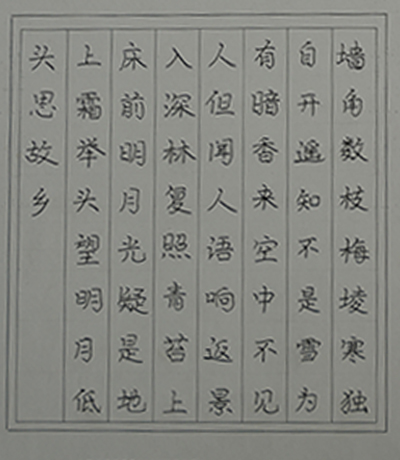 墙角数枝梅堎寒独
自开遥知不是雪为
有暗香来空中不见
人但闻人语响返景
入深林复照青苔上
床前明月光疑是地
上霜举头望明月低
头思故乡